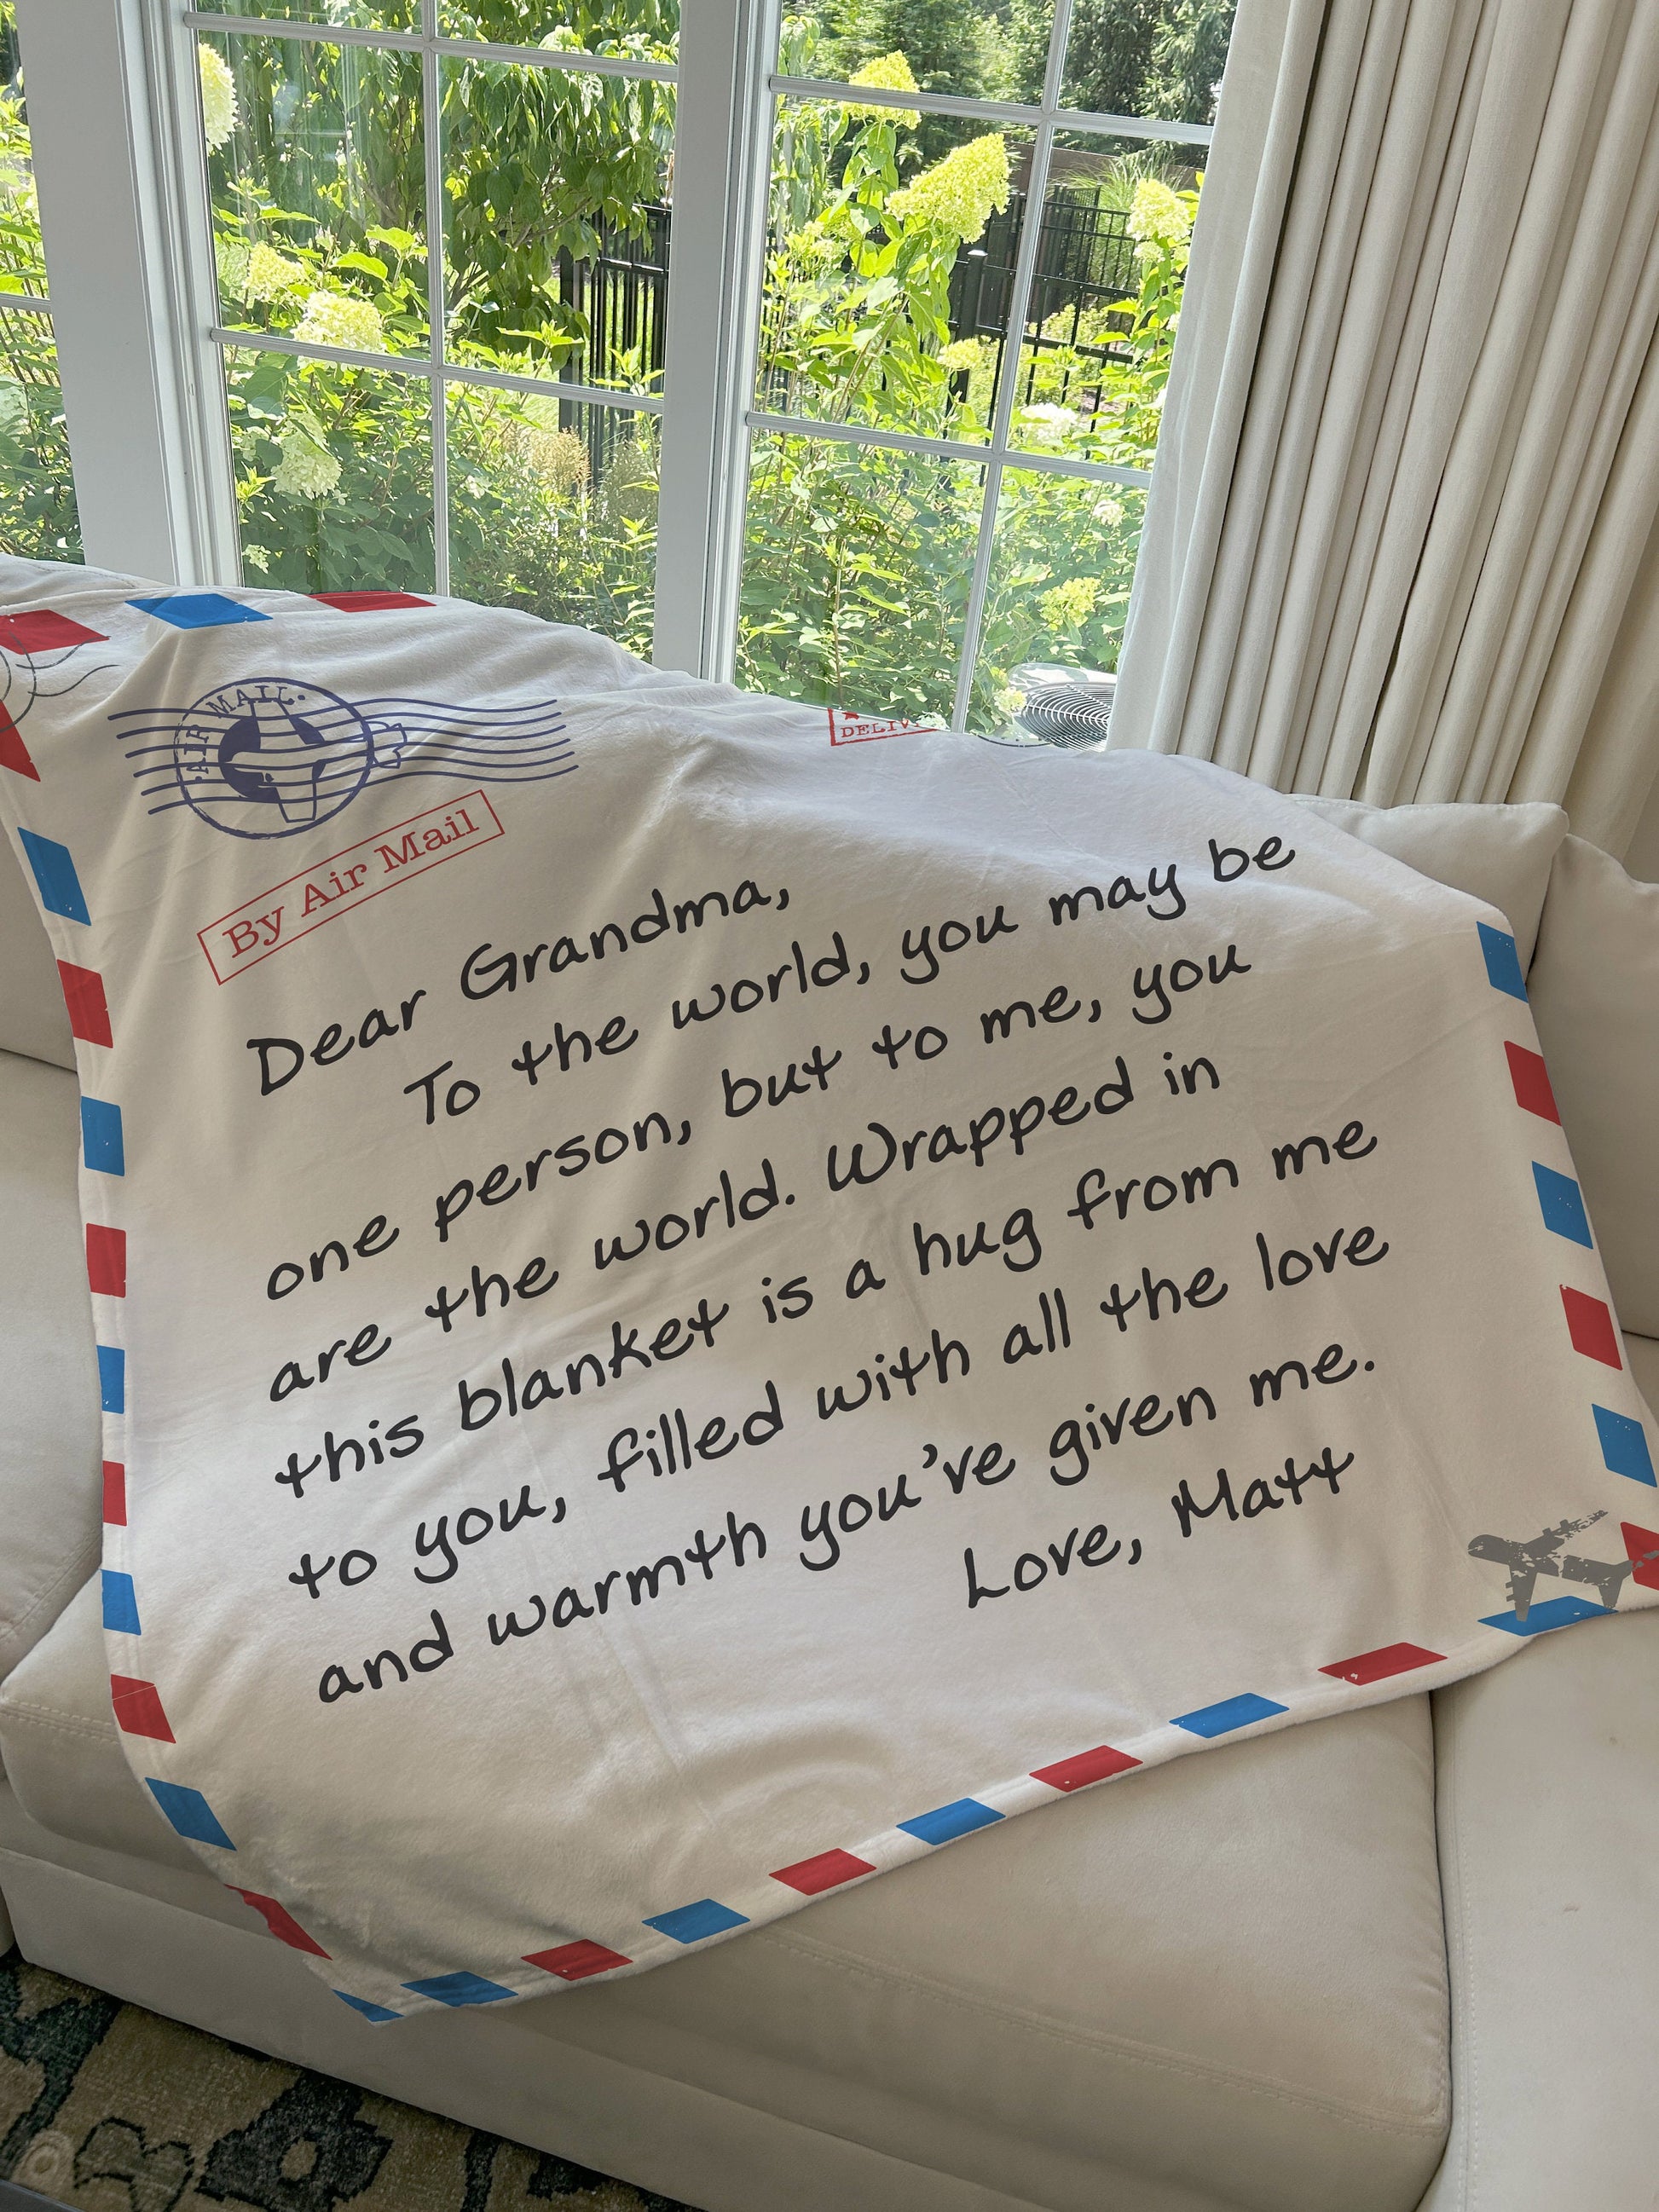 AIR MAIL
By Air Mail
Dear Grandma,
To the world, you may be
one person, but to me, you
are the world. Wrapped in
this blanket is a hug from me
to you, filled with all the love
and warmth you've given me.
Love, Matt